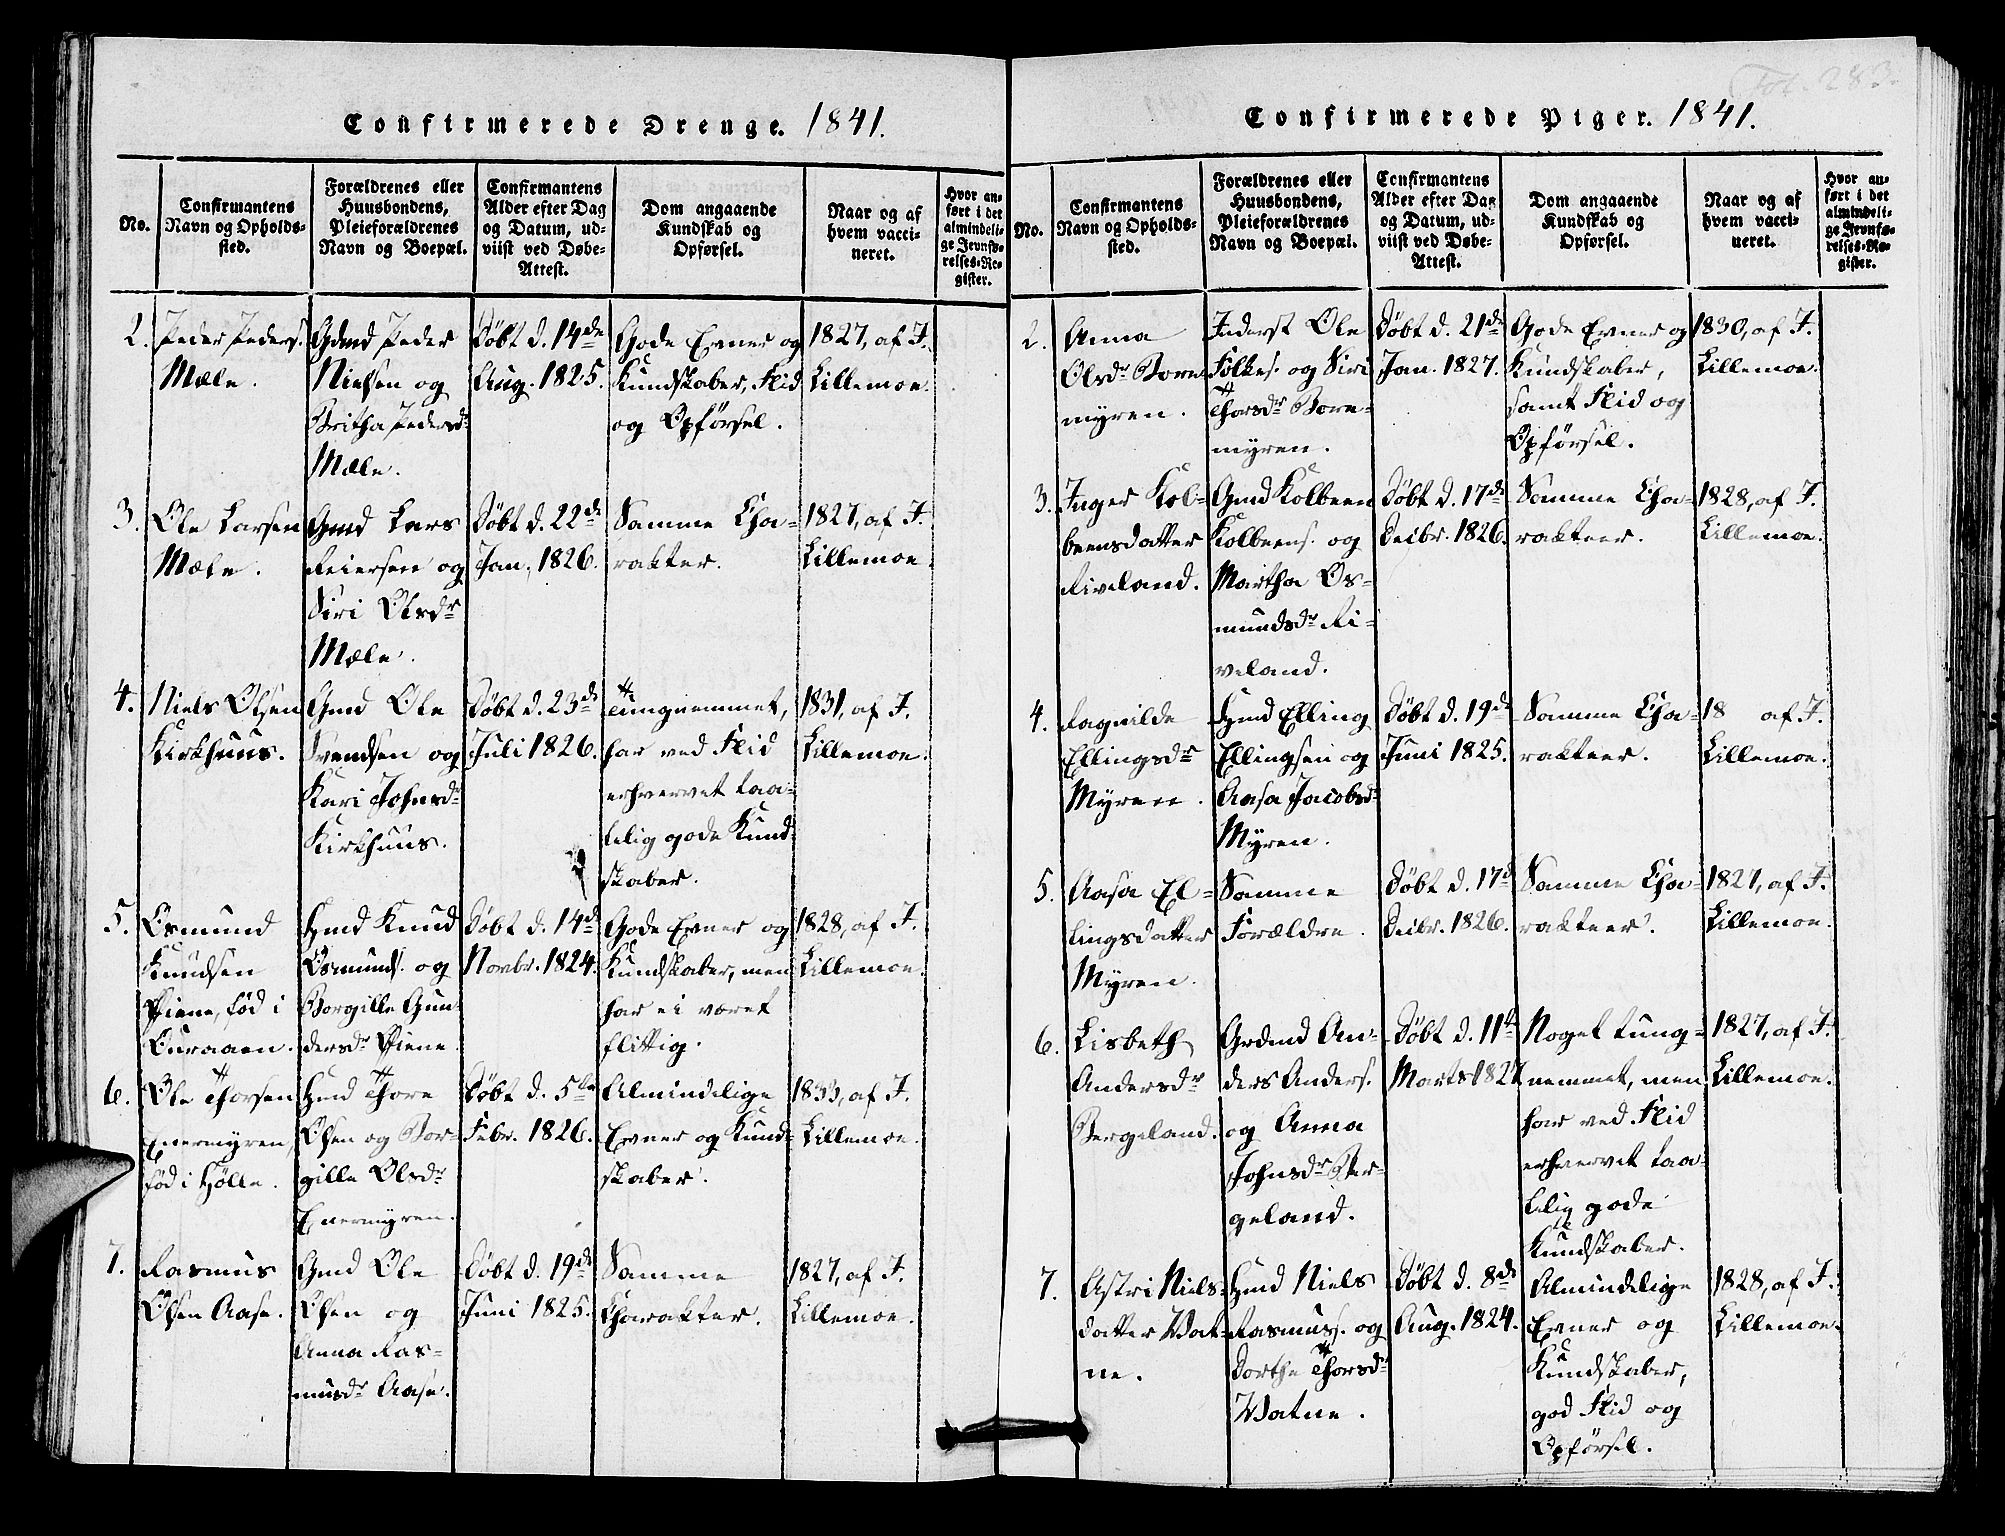 Confirmerede Drenge. 1841.
No.
Confirmantens
Navn og Opholds-
sted.
Forældrenes eller
Huusbondens,
Pleieforældrenes
Navn og Boepæl.
Confirmantens
Alder efter Dag
og Datum, ud-
viist ved Døbe-
Attest.
Dom angaaende
Kundskab og
Opførsel.
Naar og af
hvem vacci-
neret.
Hvor an-
ført i det
almindeli-
ge Jevnfø-
relses-Re-
gister.
2.
Peder Peders.
Mæle.
Gdmd Peder
Nielsen og
Britha Pedersdr
Mæle.
Døbt d. 14de
Aug. 1825.
Gode Evner og
Kundskaber, Flid
og Opførsel.
1827, af J.
Lillemoe.
3.
Ole Larsen
Mæle.
Gmd Lars
Reiersen og
Siri Olsdr
Mæle.
Døbt d. 22de
Jan. 1826.
Samme Cha-
rakter.
1827, af J.
Lillemoe.
4.
Niels Olsen
Kirkhuus.
Gmd Ole
Svendsen og
Kari Johnsdr
Kirkhuus.
Døbt d. 23de
Juli 1826.
Tungnemmet,
har ved Flid
erhvervet taa-
lelig gode Kund-
skaber.
1831, af J.
Lillemoe.
5.
Osmund
Knudsen
Fiene, fød i
Ouraaen.
Hmd Knud
Osmunds. og
Borgille Gun-
dersdr Fiene.
Døbt d. 14d
Novbr. 1824.
Gode Evner og
Kundskaber, men
har ei været
flittig.
1828, af J.
Lillemoe.
6.
Ole Thorsen
Enermyren,
fød i Hølle.
Hmd Thore
Olsen og Bor-
gille Olsdr
Enermyren.
Døbt d. 5te
Febr. 1826.
Almindelige
Evner og Kund-
skaber.
1833, af J.
Lillemoe.
7.
Rasmus
Olsen Aase.
Gmd Ole
Olsen og
Anna Ras-
musdr Aase.
Døbt d. 19de
Juni 1825.
Samme
Charakter.
1827, af J.
Lillemoe.
Fol. 283.
Confirmerede Piger. 1841.
No.
Confirmantens
Navn og Opholds-
sted.
Forældrenes eller
Huusbondens,
Pleieforældrenes
Navn og Boepæl.
Confirmantens
Alder efter Dag
og Datum, ud-
viist ved Døbe-
Attest.
Dom angaaende
Kundskab og
Opførsel.
Naar og af
hvem vacci-
neret.
Hvor an-
ført i det
almindeli-
ge Jevnfø-
relses-Re-
gister.
2.
Anna
Olsdr Bore-
myren.
Inderst Ole
Folkes. og Siri
Thorsdr Bore-
myren.
Døbt d. 21de
Jan. 1827.
Gode Evner og
Kundskaber,
samt Flid og
Opførsel.
1830, af J.
Lillemoe.
3.
Inger Kol-
beensdatter
Riveland.
Gmd Kolbeen
Kolbeens. og
Martha Os-
mundsdr Ri-
veland.
Døbt d. 17de
Decbr. 1826.
Samme Cha-
rakteer.
1828, af J.
Lillemoe.
4.
Ragnilde
Ellingsdr
Myren.
Hmd Elling
Ellingsen og
Aasa Jacobsdr
Myren.
Døbt d. 19de
Juni 1825.
Samme Cha-
rakteer.
18 af J.
Lillemoe.
5.
Aasa El-
lingsdatter
Myren.
Samme
Forældre.
Døbt d. 17d
Decbr. 1826.
Samme Cha-
rakteer.
1827, af J.
Lillemoe.
6.
Lisbeth
Andersdr
Bergeland.
Grdmd An-
ders Anders.
og Anna
Johnsdr Ber-
geland.
Døbt d. 11te
Marts 1827.
Noget tung-
nemmet, men
har ved Flid
erhvervet taa-
lelig gode
Kundskaber.
1827, af J.
Lillemoe.
7.
Astri Niels-
datter Wat-
ne.
Hmd Niels
Rasmuss. og
Dorthe Thorsdr
Watne.
Døbt d. 8de
Aug. 1824.
Almindelige
Evner og
Kundskaber,
god Flid og
Opførsel.
1828, af J.
Lillemoe.